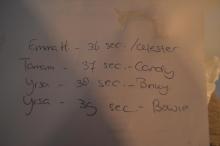 Emma H. - 36 sec. /Celester
Tamam - 37 sec. - Candy
Yrsa - 38 sec. -
Yrsa - 39 sec - Bowie